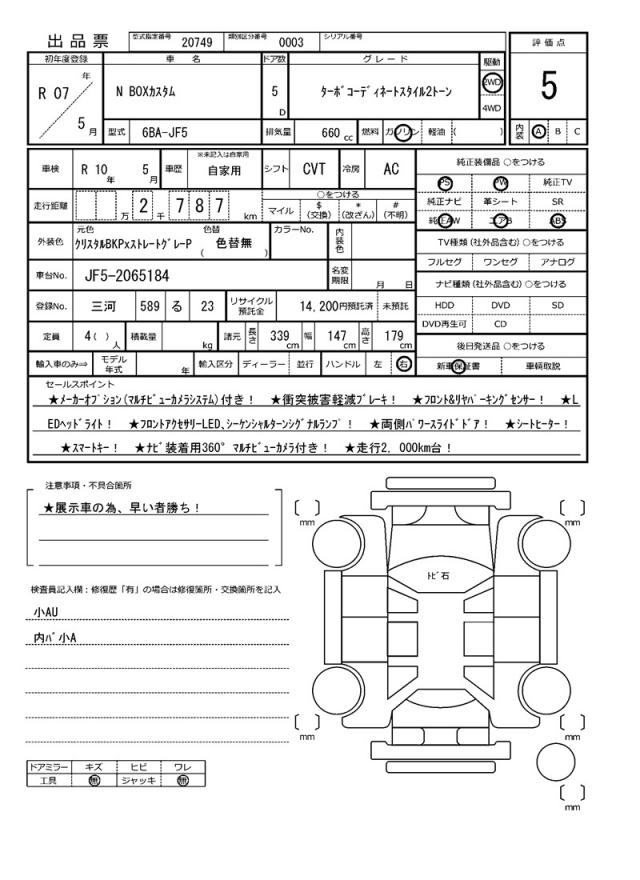 出品票
型式指定番号 20749 類別区分番号 0003 シリアル番号
初年度登録 車名 ドア数 グレード 駆動 評価点
R 07 年 5 月
N BOXカスタム 5 D ターボコーディネートスタイル2トーン 2WD 4WD 5
型式 6BA-JF5 排気量 660 cc 燃料 ガソリン 軽油 ( ) 内装 A B C
車検 R 10 年 5 月 車歴 ※未記入は自家用 自家用 シフト CVT 冷房 AC
純正装備品 ○をつける
PS PW 純正TV
純正ナビ 革シート SR
純正AW エアB ABS
走行距離 万 2 千 7 8 7 km
○をつける
マイル $(交換) *(改ざん) #(不明)
外装色 元色 クリスタルBKPxストレートグレーP 色替 ( 色替無 ) カラーNo. 内装色
TV種類 (社外品含む) ○をつける
フルセグ ワンセグ アナログ
車台No. JF5-2065184 名変期限 月 日
ナビ種類 (社外品含む) ○をつける
HDD DVD SD
DVD再生可 CD
登録No. 三河 589 る 23 リサイクル預託金 14,200円預託済 未預託
定員 4( ) 人 積載量 kg 諸元 長さ 339 cm 幅 147 cm 高さ 179 cm
後日発送品 ○をつける
新車保証書 車輌取説
輸入車のみ⇒ モデル年式 年 輸入区分 ディーラー 並行 ハンドル 左 右
セールスポイント
★メーカーオプション(マルチビューカメラシステム)付き! ★衝突被害軽減ブレーキ! ★フロント&リヤパーキングセンサー! ★L
EDヘッドライト! ★フロントアクセサリーLED、シーケンシャルターンシグナルランプ! ★両側パワースライドドア! ★シートヒーター!
★スマートキー! ★ナビ装着用360°マルチビューカメラ付き! ★走行2,000km台!
注意事項・不具合箇所
★展示車の為、早い者勝ち!
検査員記入欄:修復歴「有」の場合は修復箇所・交換箇所を記入
小AU
内バ小A
トビ石
mm
mm
mm
mm
mm
ドアミラー キズ ヒビ ワレ
工具 無 ジャッキ 無